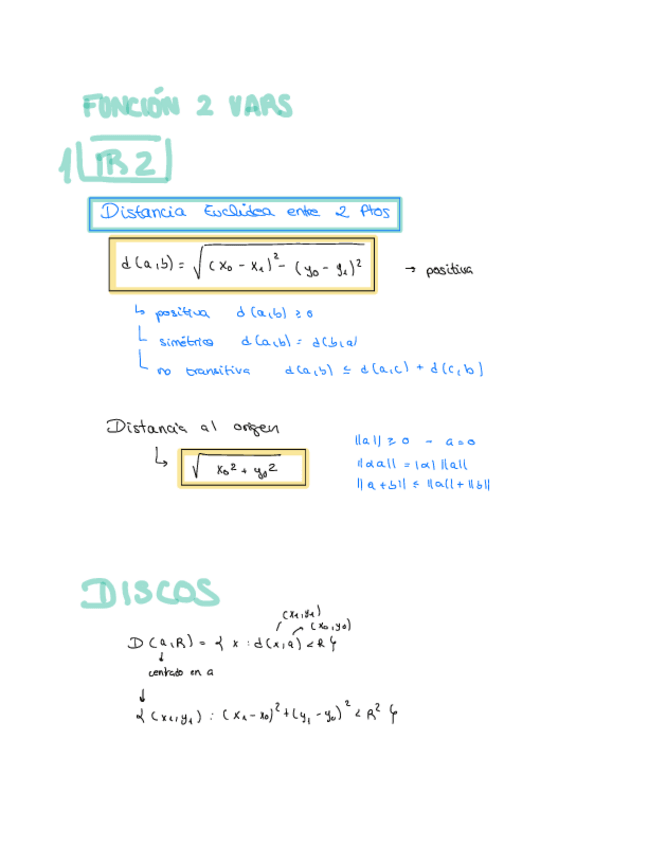 FUNCIÓN 2 VARS
1 IR2
Distancia Euclidea entre 2 Ptos
d(a,b) = √(x₀ - x₁)² - (y₀ - y₁)² → positiva
↳ positiva d(a,b) ≥ 0
simétrica d(a,b) = d(b,a)
no transitiva d(a,b) ≤ d(a,c) + d(c,b)
Distancia al origen
↳ √x₀² + y₀²
||a|| ≥ 0 - a=0
||αa|| = |α| ||a||
||a+b|| ≤ ||a|| + ||b||
DISCOS
(x₁,y₁)
(x₀,y₀)
D(a,R) = { x : d(x,a) < R }
↓
centrado en a
↓
{(x₁,y₁) : (x₁-x₀)² + (y₁-y₀)² < R² }